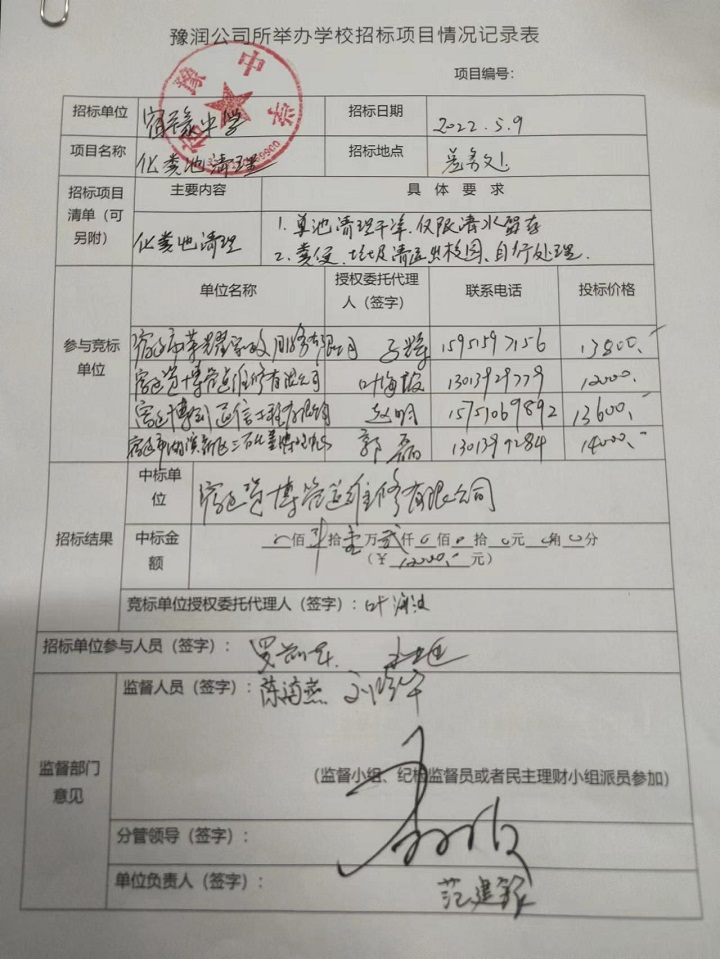 豫润公司所举办学校招标项目情况记录表
项目编号：
招标单位 宿豫中学 招标日期 2022.5.9
项目名称 化粪池清理 招标地点 总务处
招标项目清单（可另附） 主要内容 具体要求
化粪池清理 1. 粪池清理干净,仅限清水留存
2. 粪便、垃圾清运出校园、自行处理.
参与竞标单位 单位名称 授权委托代理人（签字） 联系电话 投标价格
宿迁市荣耀家政服务有限公司 15951597156 13800.-
宿迁贤博管道维修有限公司 叶海波 13013929779 12000.
宿迁博 通信工程有限公司 赵明 15751069892 13600.-
宿迁市 郭磊 1301399284 14000.-
招标结果 中标单位 宿迁贤博管道维修有限公司
中标金额 佰 拾壹万贰仟0佰0拾0元0角0分
（¥ 12000.- 元）
竞标单位授权委托代理人（签字）：叶海波
招标单位参与人员（签字）：
监督部门意见 监督人员（签字）：陈海燕
（监督小组、纪检监督员或者民主理财小组派员参加）
分管领导（签字）：
单位负责人（签字）：